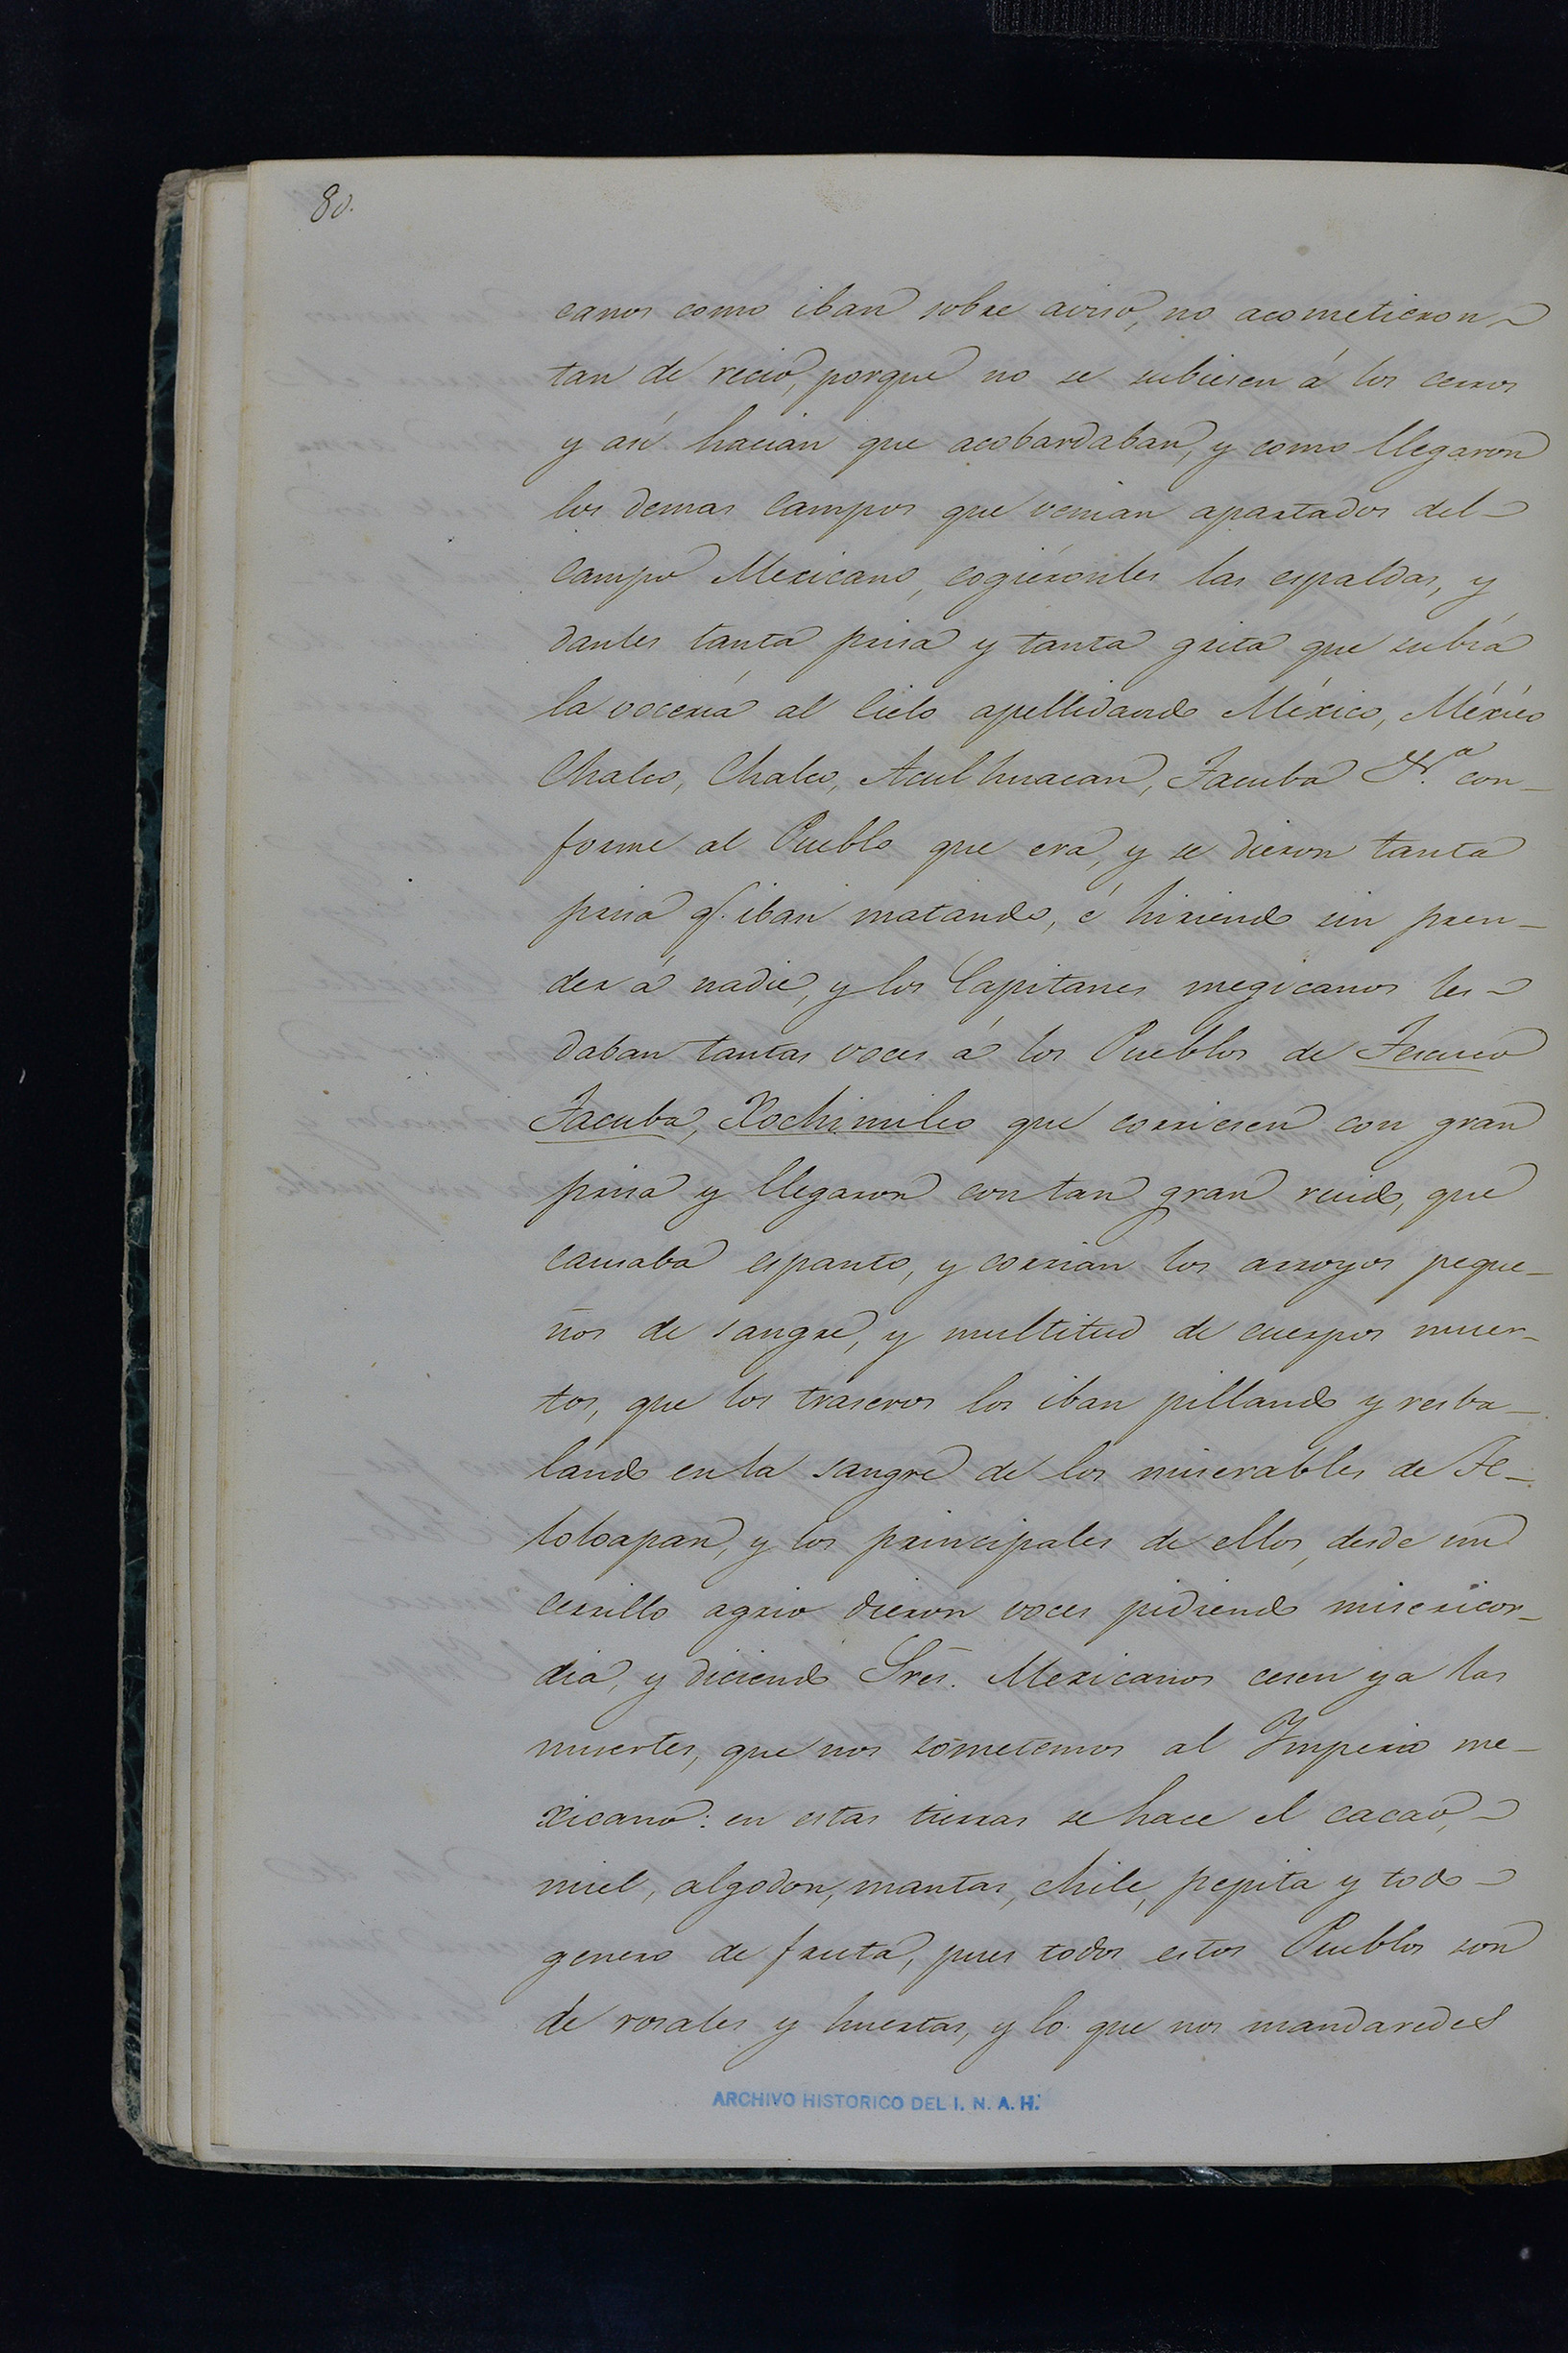 80.
canos como iban sobre aviso, no acometieron
tan de recio, porque no se subiesen á los cerros
y así hacian que acobardaban, y como llegaron
los demas campos que venian apartados del
campo Mexicano, cogiéronles las espaldas, y
danles tanta prisa y tanta grita que subía
la vocería al Cielo apellidando México, México
Chalco, Chalco, Aculhuacan, Tacuba &.ª con-
forme al Pueblo que era, y se dieron tanta
prisa q. iban matando, é hiriendo sin pren-
der á nadie, y los Capitanes megicanos les
daban tantas voces á los Pueblos de Tescuco
Tacuba, Xochimilco que corriesen con gran
prisa y llegaron con tan gran ruido, que
causaba espanto, y corrian los arroyos peque-
ños de sangre, y multitud de cuerpos muer-
tos, que los traseros los iban pillando y resba-
lando en la sangre de los miserables de
toloapan, y los principales de ellos, desde un
cerrillo agrio dieron voces pidiendo misericor-
dia, y diciendo Sres. Mexicanos cesen ya las
muertes, que nos sometemos al Imperio me-
xicano: en estas tierras se hace el cacao,
miel, algodon, mantas, chile, pepita y todo
genero de fruta, pues todos estos Pueblos son
de rosales y huertas, y lo que nos mandaredes
ARCHIVO HISTORICO DEL I. N. A. H.